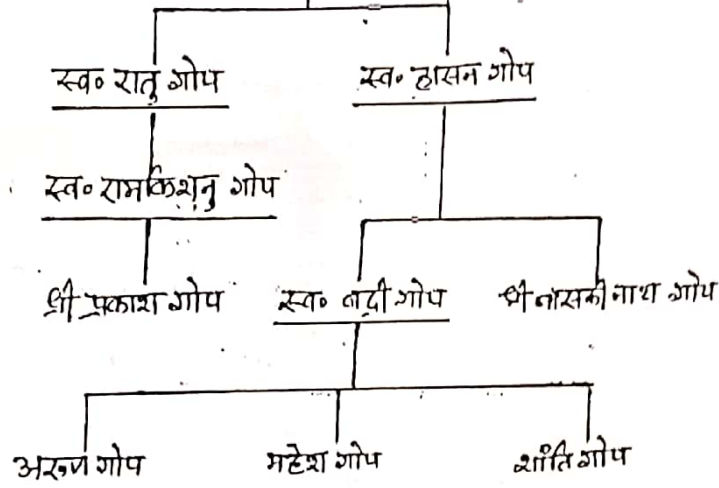 स्व० रातु गोप स्व० हासन गोप
स्व० रामकिशनु गोप
श्री प्रकाश गोप स्व० बदी गोप श्री बासकी नाथ गोप
अरुण गोप महेश गोप शांति गोप